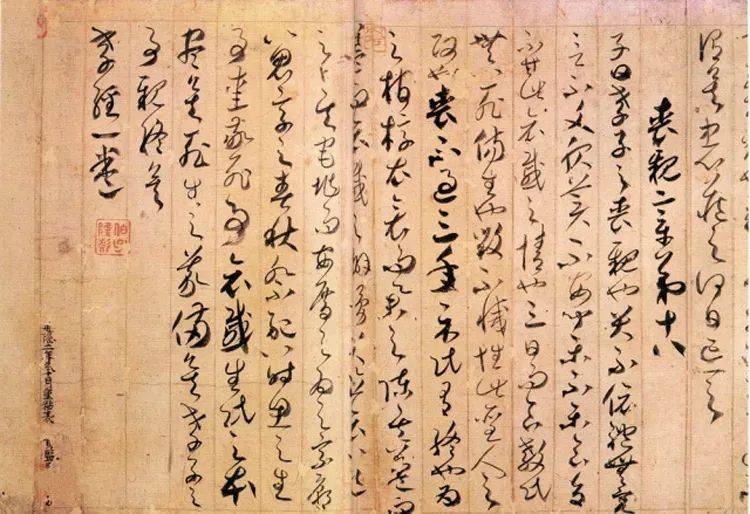 謂矣中心藏之何日忘之
喪親章第十八
子曰孝子之喪親也哭不依禮無容
言不文服美不安聞樂不樂食旨
不甘此哀戚之情也三日而食教民
無以死傷生也毀不滅性此聖人之
政也喪不過三年示民有終也為
之棺椁衣衾而舉之陳其簠簋而
哀戚之擗踊哭泣哀以送
之卜其宅兆而安厝之為之宗廟
以鬼享之春秋祭祀以時思之生
事愛敬死事哀戚生民之本
盡矣死生之義備矣孝子之
事親終矣
孝經一卷
建隆二年冬十月重粘表